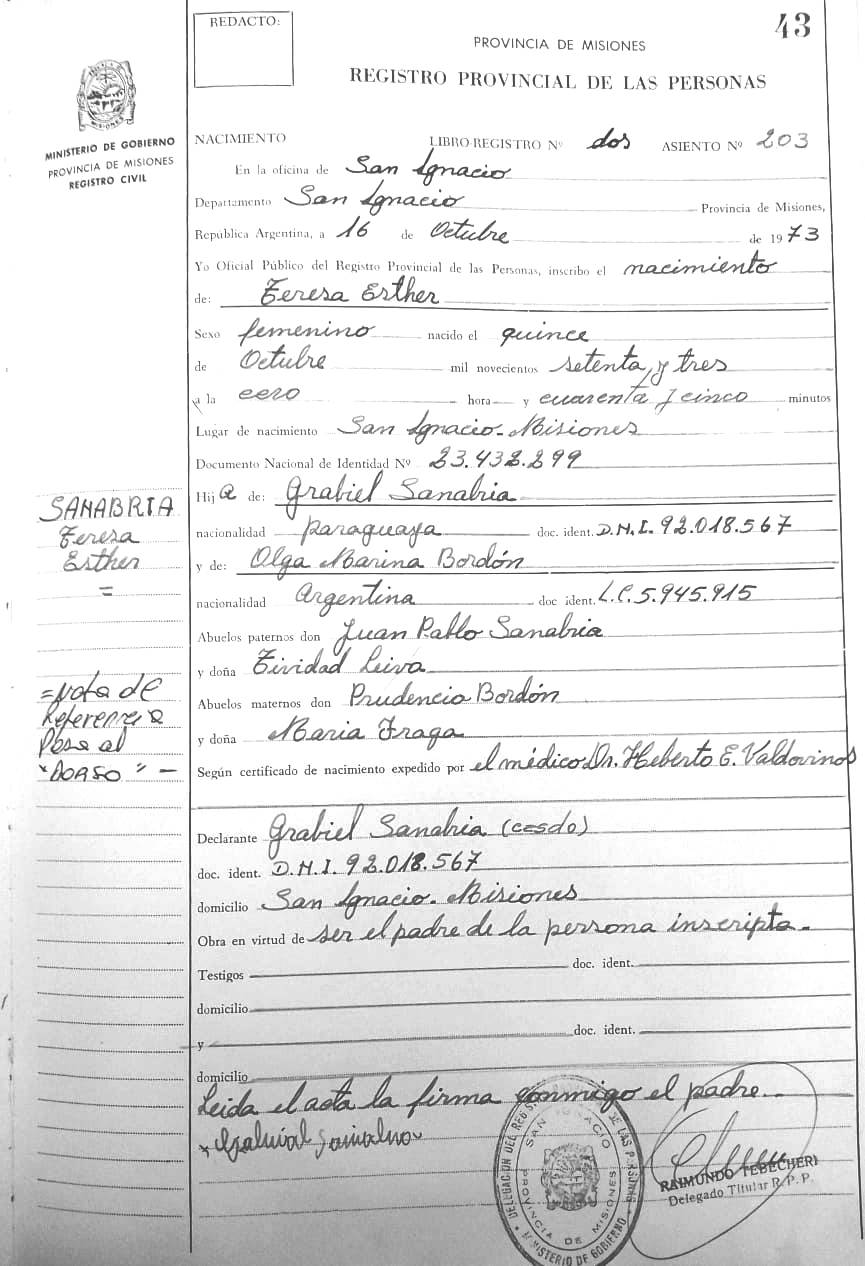 REDACTO:
43
PROVINCIA DE MISIONES
REGISTRO PROVINCIAL DE LAS PERSONAS
MINISTERIO DE GOBIERNO
PROVINCIA DE MISIONES
REGISTRO CIVIL
NACIMIENTO LIBRO-REGISTRO Nº dos ASIENTO Nº 203
En la oficina de San Ignacio
Departamento San Ignacio Provincia de Misiones,
República Argentina, a 16 de Octubre de 1973
Yo Oficial Público del Registro Provincial de las Personas, inscribo el nacimiento
de: Teresa Esther
Sexo femenino nacido el quince
de Octubre mil novecientos setenta y tres
a la cero hora y cuarenta y cinco minutos
Lugar de nacimiento San Ignacio - Misiones
Documento Nacional de Identidad Nº 23.438.299
Hija de: Grabiel Sanabria
nacionalidad paraguaya doc. ident. D.N.I. 92.018.567
y de: Olga Marina Bordón
nacionalidad Argentina doc ident. L.C. 5.945.915
Abuelos paternos don Juan Pablo Sanabria
y doña Tividad Leiva
Abuelos maternos don Prudencio Bordón
y doña Maria Fraga
Según certificado de nacimiento expedido por el médico Dr. Heberto E. Valdovinos
SANABRIA
Teresa
Esther
=
=Nota de
Referencia
Pasa al
"DORSO" -
Declarante Grabiel Sanabria (casdo)
doc. ident. D.N.I. 92.018.567
domicilio San Ignacio - Misiones
Obra en virtud de ser el padre de la persona inscripta.
Testigos doc. ident.
domicilio
y doc. ident.
domicilio
Leida el acta la firma conmigo el padre.
DELEGACION DEL REG. DE LAS PERSONAS
SAN IGNACIO
PROVINCIA DE MISIONES
MINISTERIO DE GOBIERNO
RAIMUNDO TEBECHERI
Delegado Titular R. P. P.